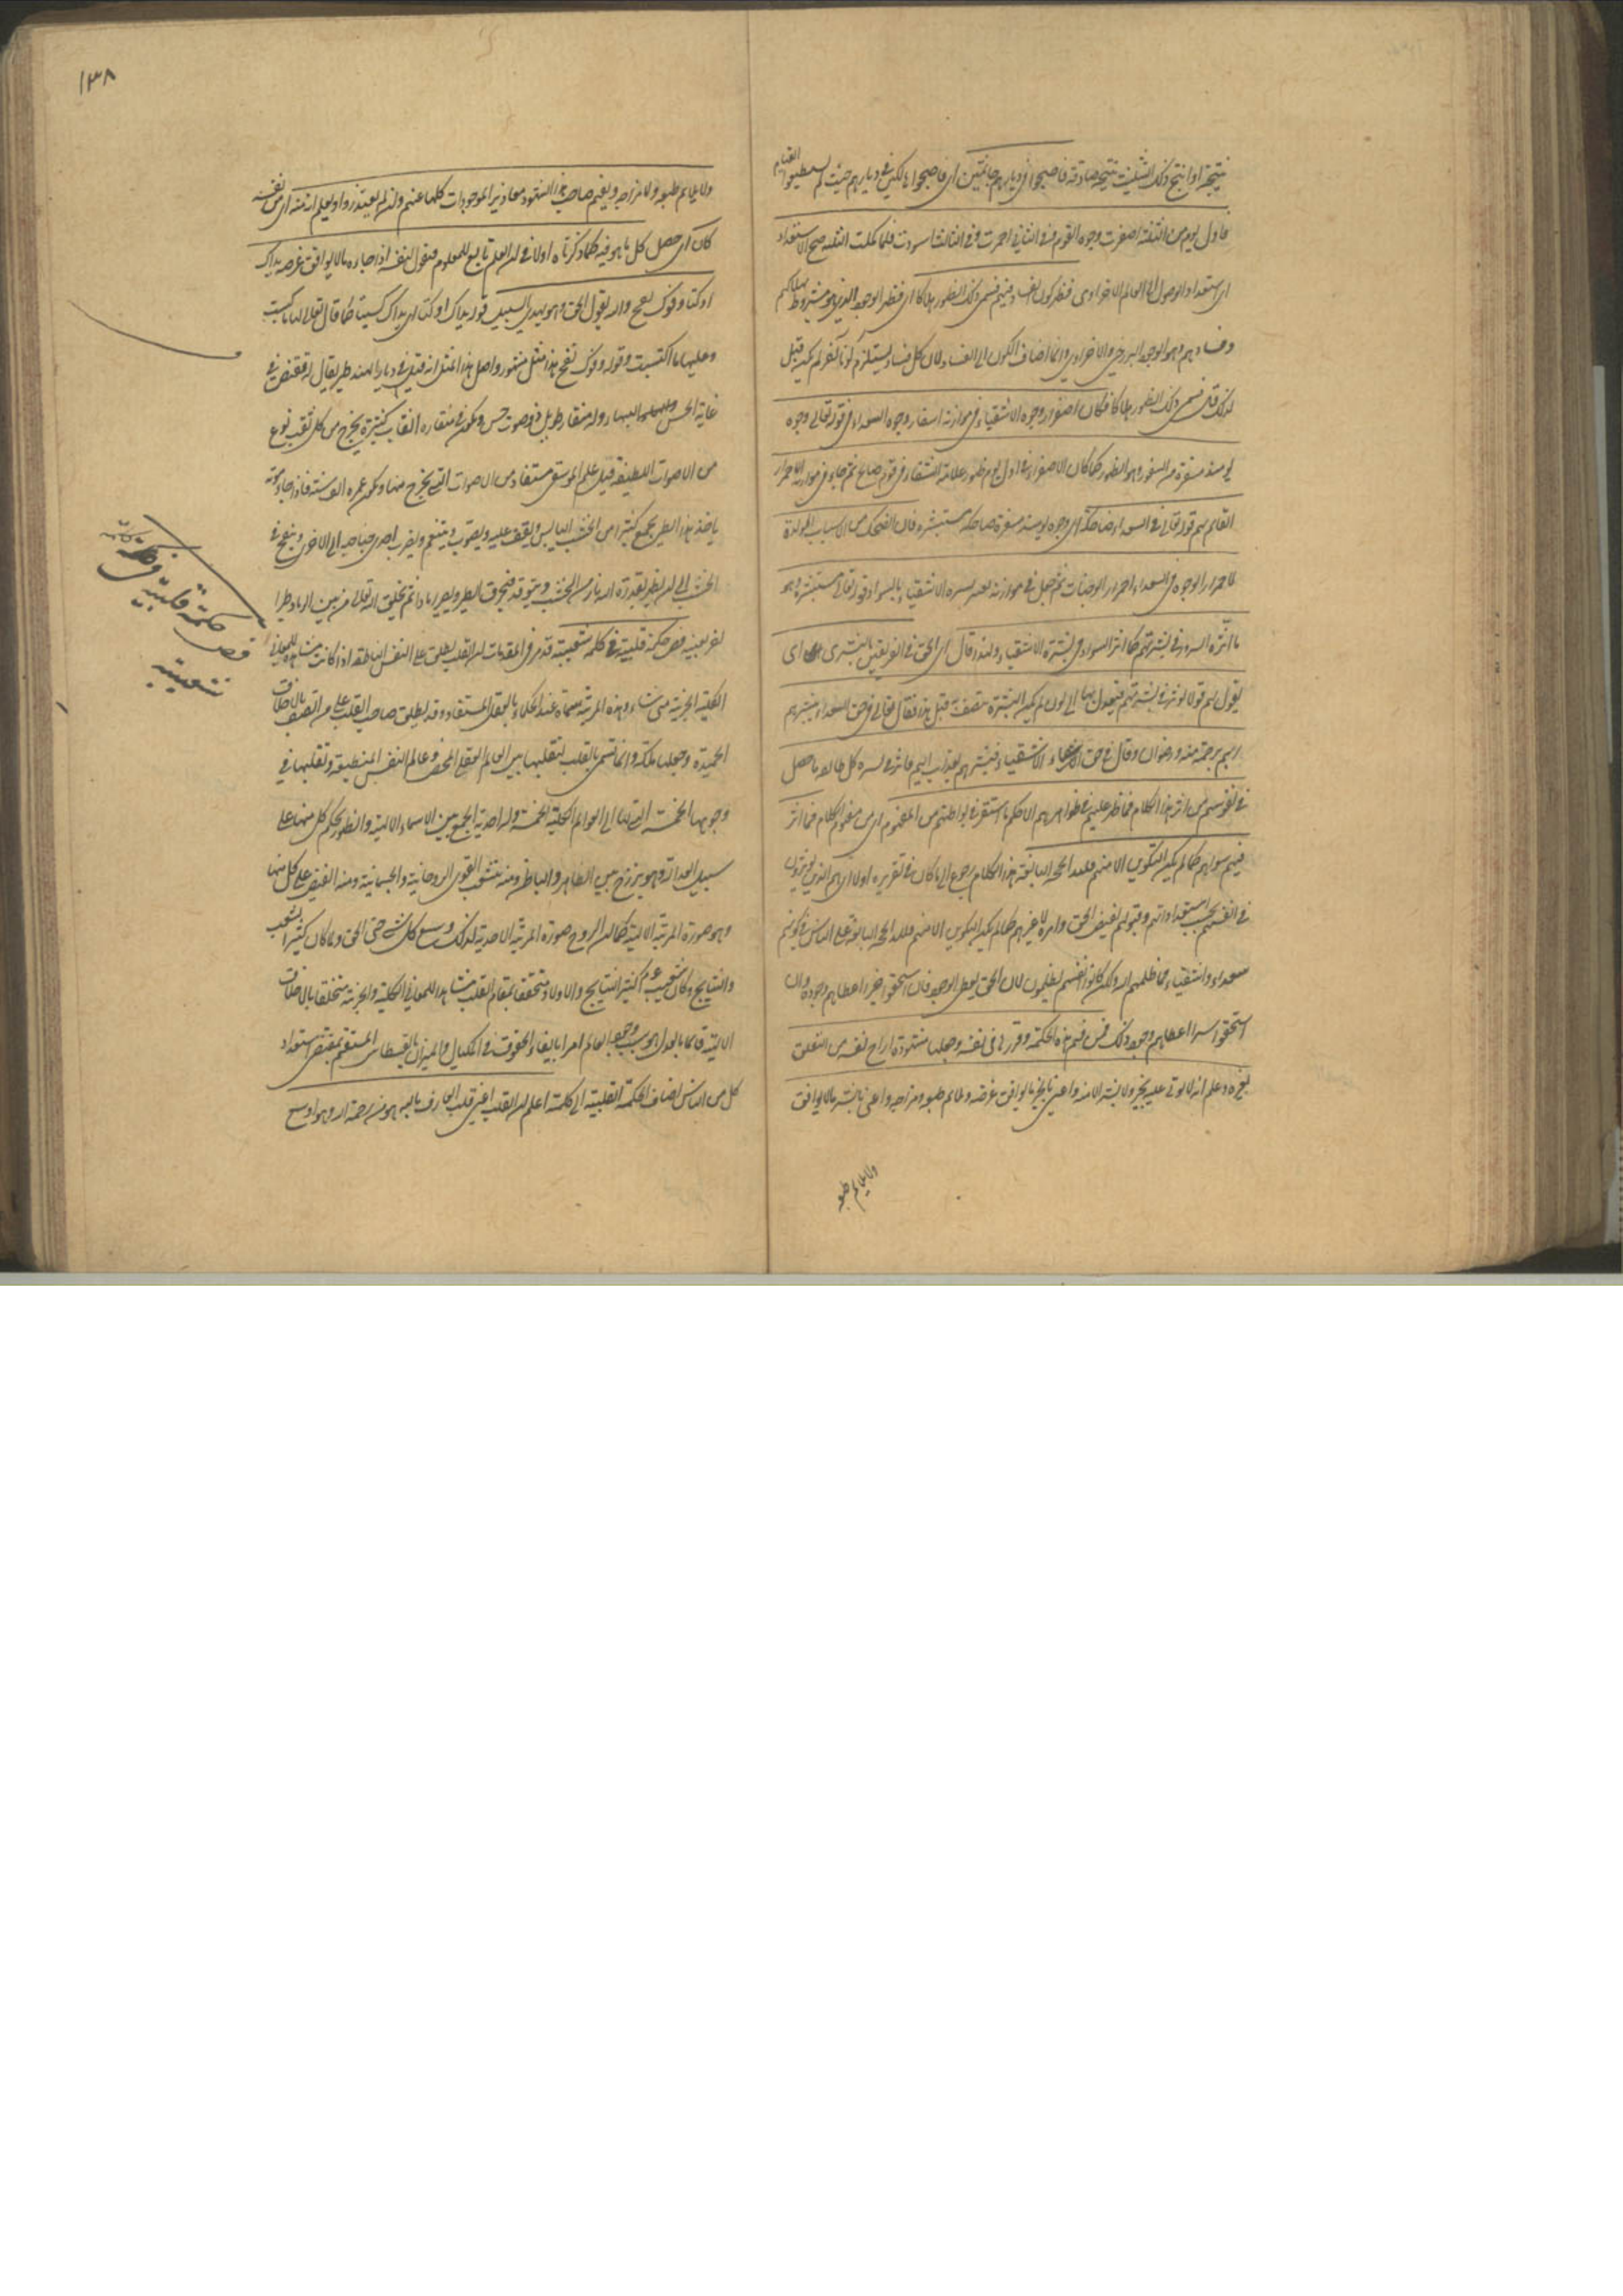 نتيجة او انتج ذلك التثليث نتيجة صادقة فاصبحوا في ديارهم جاثمين اى فاصبحوا هالكين في ديارهم حيث لم يستطيعوا القيام
فاول يوم من الثلثة اصفرت وجوه القوم وفي الثاني احمرت وفي الثالث اسودت فلما كملت الثلثة صح الاستعداد
اى استعداد الوصول الى العالم الاخراوى فظهر كون الفساد فيهم فسمى ذلك الظهور هلاكا اى فظهر الوجه الذى هو مشروط بهلاكهم
وفسادهم وهو الوجه البرزخى والاخراوى وانما اضاف الكون الى الفساد لان كل فساد يستلزم كونا آخر لم يكن قبل
لذلك قال فسمى ذلك الظهور هلاكا فكان اصفرار وجوه الاشقياء في موازنة اسفار وجوه السعداء في قوله تعالى وجوه
يومئذ مسفرة من السفور وهو الظهور كما كان الاصفرار في اول يوم ظهور علامة الشقاء في قوم صالح ثم جاء في موازنة الاحمرار
القائم بهم قوله تعالى في السعداء ضاحكة اى وجوه يومئذ مسفرة ضاحكة مستبشرة فان الضحك من الاسباب المولدة
لاحمرار الوجوه في السعداء احمرار الوجنات ثم جعل في موازنة تغير بشرة الاشقياء بالسواد قوله تعالى مستبشرة وهو
ما اثره السرور في بشرتهم كما اثر السواد في بشرة الاشقياء ولهذا قال اى الحق في الفريقين بالبشرى اى
يقول لهم قولا يؤثر في بشرتهم فيعدل بها الى لون لم يكن البشرة تتصف قبل هذا فقال تعالى في حق السعداء يبشرهم
ربهم برحمة منه ورضوان وقال في حق الاشقياء فبشرهم بعذاب اليم فاثر في بشرة كل طائفة ما حصل
في نفوسهم من اثر هذا الكلام فما ظهر عليهم في ظواهرهم الا حكم ما استقر في بواطنهم من المفهوم اى من مفهوم الكلام فما اثر
فيهم سواهم كما لم يكن التكوين الا منهم فلله الحجة البالغة هذا الكلام رجوع الى ما كان في تقريره اولا اى هم الذين يؤثرون
في انفسهم بحسب استعداداتهم وقبولهم لفيض الحق وامره لا غيرهم كما لم يكن التكوين الا منهم فلله الحجة البالغة على الناس في كونهم
سعداء واشقياء فما ظلمهم الله ولكن كانوا انفسهم يظلمون لان الحق يعطى الوجود فان استحقوا خيرا اعطاهم وجوده وان
استحقوا شرا اعطاهم وجود ذلك فمن فهم هذه الحكمة وقررها في نفسه وجعلها مشهودة له اراح نفسه من التعلق
بغيره وعلم انه لا يؤتى عليه بخير ولا بشر الا منه واعنى بالخير ما يوافق غرضه ويلائم طبعه ومزاجه واعنى بالشر ما لا يوافق
ولا يلائم طبعه
١٣٨
ولا يلائم طبعه ولا مزاجه ويقيم صاحب هذا الشهود معاذير الموجودات كلها عنهم وان لم يعتذروا ويعلم انه منه اى من نفسه
كان اى حصل كل ما هو فيه كما ذكرناه اولا في ان العلم تابع للمعلوم فيقول لنفسه اذا جاءه ما لا يوافق غرضه يداك
اوكتا وفوك نفخ والله يقول الحق وهو يهدى السبيل قوله يداك اوكتا اى يداك كسبتا كما قال تعالى لها ما كسبت
وعليها ما اكتسبت وقوله وفوك نفخ هذا مثل مشهور واصل هذا المثل انه قيل في ديار الهند طير يقال له ققنس في
غاية الحسن والبهاء وله منقار طويل وصوت حسن ويكون في منقاره انقاب كثيرة يخرج من كل ثقب نوع
من الاصوات اللطيفة قيل علم الموسيقى مستفاد من الاصوات التى يخرج منها ويكون عمره الف سنة فاذا جاء موته
ياخذ هذا الطير يجمع كثيرا من الخشب اليابس ويقف عليه ويصوت ويتنغم ويضرب احدى جناحيه الى الاخرى وينفخ في
الخشب الى ان يظهر بقدرة الله نار من الخشب ويتوقد فيحرق الطير ويصير رمادا ثم يخلق الله تعالى من بين الرماد طيرا
آخر بعينه فص حكمة قلبية في كلمة شعيبية قد مر في المقدمات ان القلب يطلق على النفس الناطقة اذا كانت مشاهدة للمعانى
الكلية والجزئية متى شاءت وهذه المرتبة مسماة عند الحكماء بالعقل المستفاد وقد يطلق صاحب القلب على من اتصف بالاخلاق
الحميدة وجعلها ملكة وانما تسمى بالقلب لتقلبها بين العالم العقلى المحض وعالم النفس المنطبعة وتقلبها في
وجوهها الخمسة التى لها الى العوالم الكلية الخمسة وله احدية الجمع بين الاسماء الالهية والظهور بحكم كل منها على
سبيل العدالة وهو برزخ بين الظاهر والباطن ومنه تتشعب القوى الروحانية والجسمانية ومنه الفيض على كل منها
وهو صورة المرتبة الالهية كما ان الروح صورة المرتبة الاحدية لذلك وسع كل شىء حتى الحق ولما كان كثير الشعب
والنتايج وكان شعيب عم كثير النتايج والاولاد متحققا بمقام القلب مشاهدا للمعانى الكلية والجزئية متخلقا بالاخلاق
الالهية قائما بالعدل الموجب وجود العالم امرا بايفاء الحقوق في المكيال والميزان بالقسطاس المستقيم بمقتضى استعداد
كل من الناس اضاف الحكمة القلبية الى كلمته اعلم ان القلب اعنى قلب العارف بالله هو من رحمة الله وهو اوسع
فص
حكمة قلبية في كلمة
شعيبية